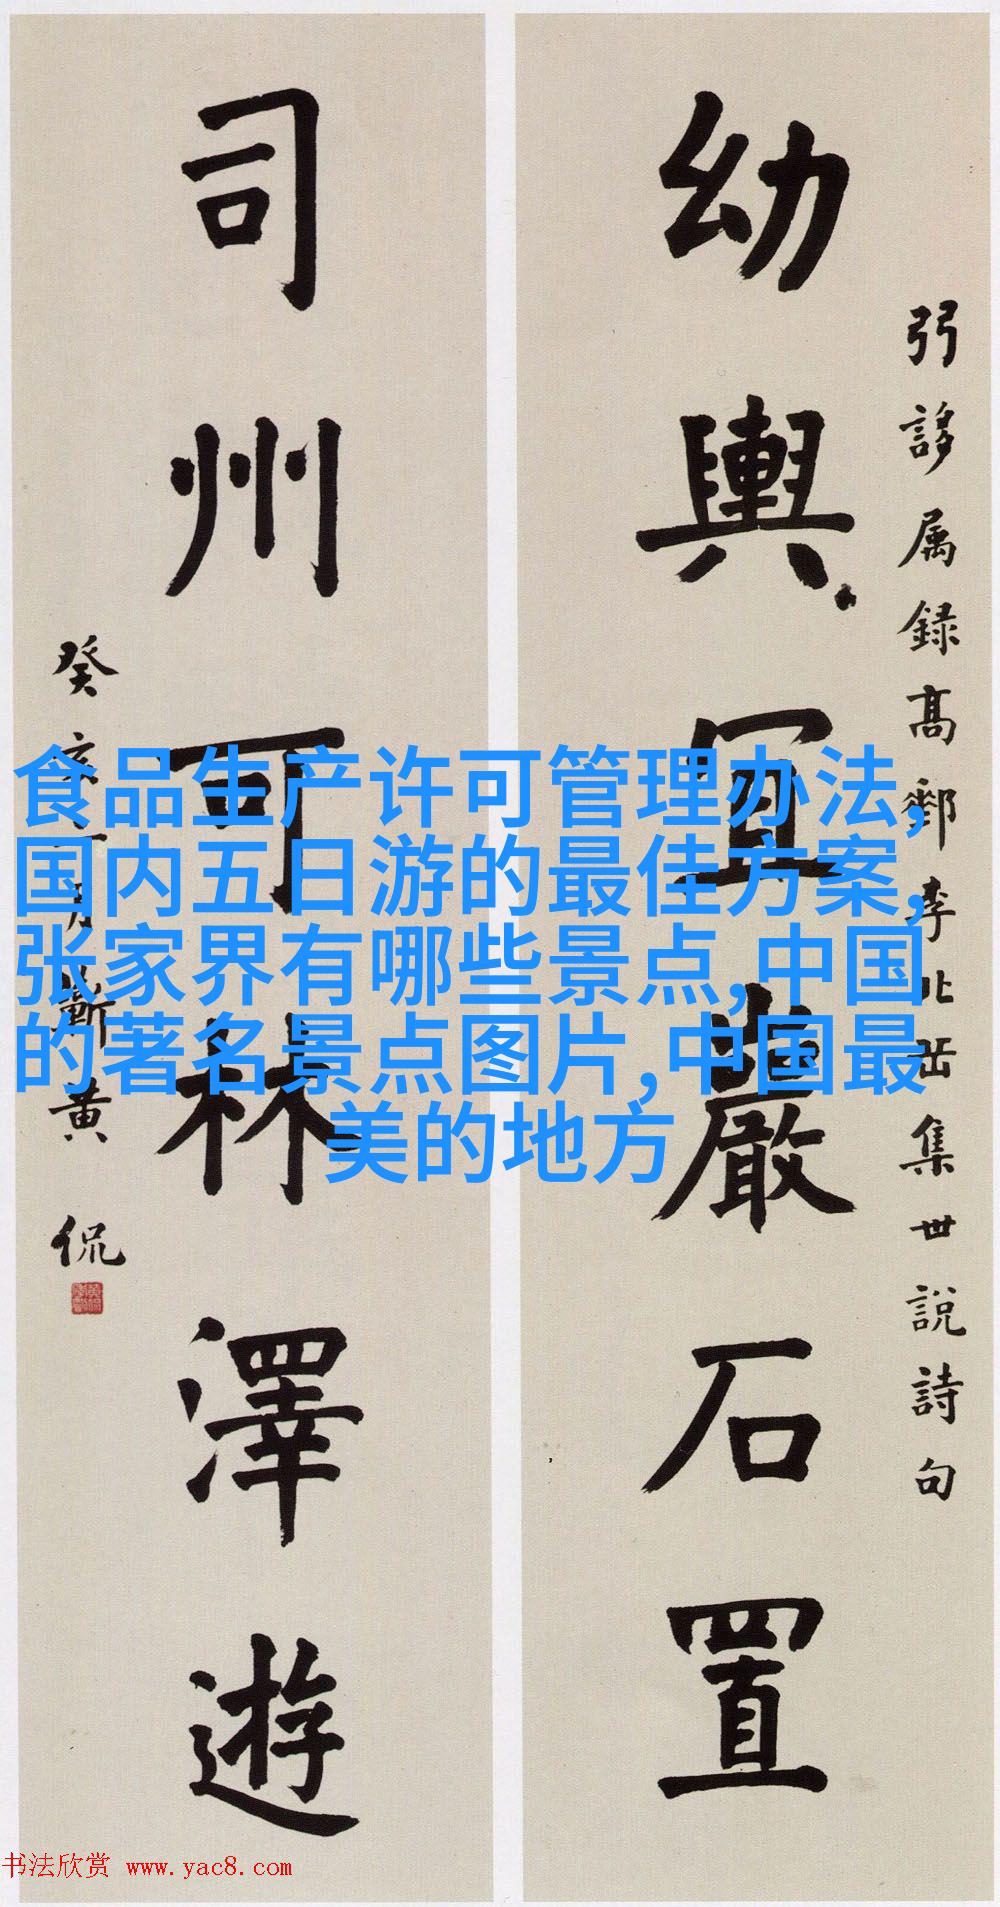 弜誃属録高郵李北岳集世說詩句
幼輿宜巖石置
司州可林澤遊
蘄黄侃
食品生产许可管理办法,
国内五日游的最佳方案,
张家界有哪些景点,中国
的著名景点图片,中国最
美的地方
书法欣赏 www.yac8.com